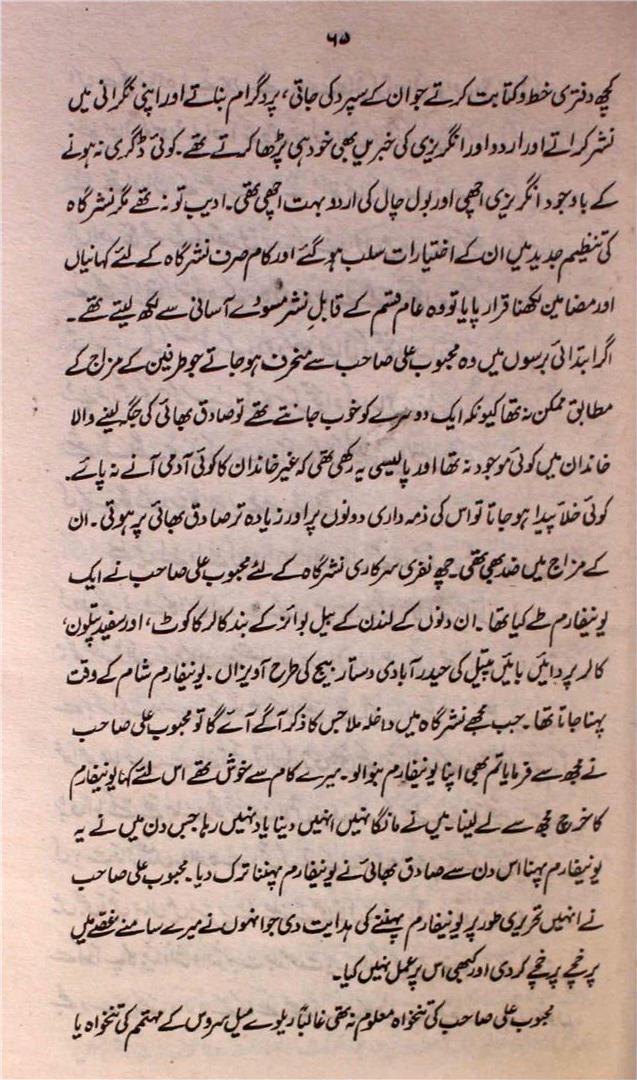 ۶۵
کچھ دفتری خط و کتابت کرتے جو ان کے سپرد کی جاتی، پروگرام بناتے اور اپنی نگرانی میں
نشر کراتے اور اردو اور انگریزی کی خبریں بھی خود ہی پڑھا کرتے تھے۔ کوئی ڈگری نہ ہونے
کے باوجود انگریزی اچھی اور بول چال کی اردو بہت اچھی تھی۔ ادیب تو نہ تھے مگر نشرگاہ
کی تنظیم جدید میں ان کے اختیارات سلب ہو گئے اور کام صرف نشرگاہ کے لئے کہانیاں
اور مضامین لکھنا قرار پایا تو وہ عام قسم کے قابلِ نشر مسودے آسانی سے لکھ لیتے تھے۔
اگر ابتدائی برسوں میں وہ محبوب علی صاحب سے منحرف ہو جاتے جو طرفین کے مزاج کے
مطابق ممکن نہ تھا کیونکہ ایک دوسرے کو خوب جانتے تھے تو صادق بھائی کی جگہ لینے والا
خاندان میں کوئی موجود نہ تھا اور پالیسی یہ رکھی تھی کہ غیر خاندان کا کوئی آدمی آنے نہ پائے۔
کوئی خلا پیدا ہو جاتا تو اس کی ذمہ داری دونوں پر اور زیادہ تر صادق بھائی پر ہوتی۔ ان
کے مزاج میں ضد بھی تھی۔ چھ نفری سرکاری نشرگاہ کے لئے محبوب علی صاحب نے ایک
یونیفارم طے کیا تھا۔ ان دنوں کے لندن کے بیل بوائز کے بند کالر کا کوٹ، اور سفید پتلون،
کالر پر دائیں بائیں پیتل کی حیدرآبادی دستار بیج کی طرح آویزاں۔ یونیفارم شام کے وقت
پہنا جاتا تھا۔ جب مجھے نشرگاہ میں داخلہ ملا جس کا ذکر آگے آئے گا تو محبوب علی صاحب
نے مجھ سے فرمایا تم بھی اپنا یونیفارم بنوا لو۔ میرے کام سے خوش تھے اس لئے کہا یونیفارم
کا خرچ مجھ سے لے لینا۔ میں نے مانگا نہیں انہیں دینا یاد نہیں رہا جس دن میں نے یہ
یونیفارم پہنا اس دن سے صادق بھائی نے یونیفارم پہننا ترک دیا۔ محبوب علی صاحب
نے انہیں تحریری طور پر یونیفارم پہننے کی ہدایت دی جو انہوں نے میرے سامنے غصے میں
پرخچے پرخچے کر دی اور کبھی اس پر عمل نہیں کیا۔
محبوب علی صاحب کی تنخواہ معلوم نہ تھی غالباً ریلوے میل سروس کے مہتمم کی تنخواہ یا